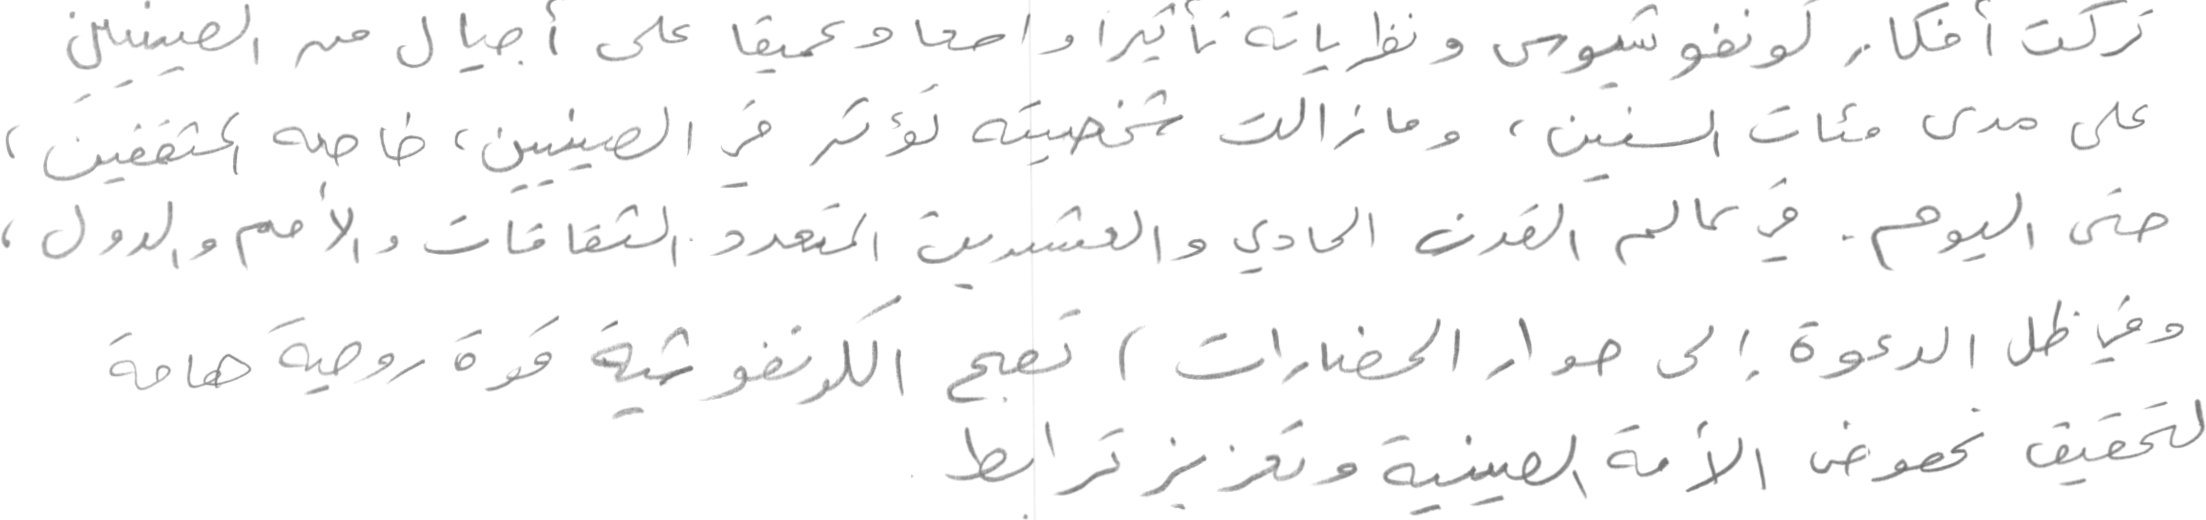 تركت أفكار كونفوشيوس ونظرياته تأثيرا واضحا وعميقا على أجيال من الصينيين
على مدى مئات السنين، وما زالت شخصيته تؤثر في الصينيين، خاصة المثقفين،
حتى اليوم. في عالم القرن الحادي والعشرين المتعدد الثقافات والأمم والدول،
وفي ظل الدعوة إلى حوار الحضارات، تصبح الكونفوشية قوة روحية هامة
لتحقيق نهوض الأمة الصينية وتعزيز ترابط